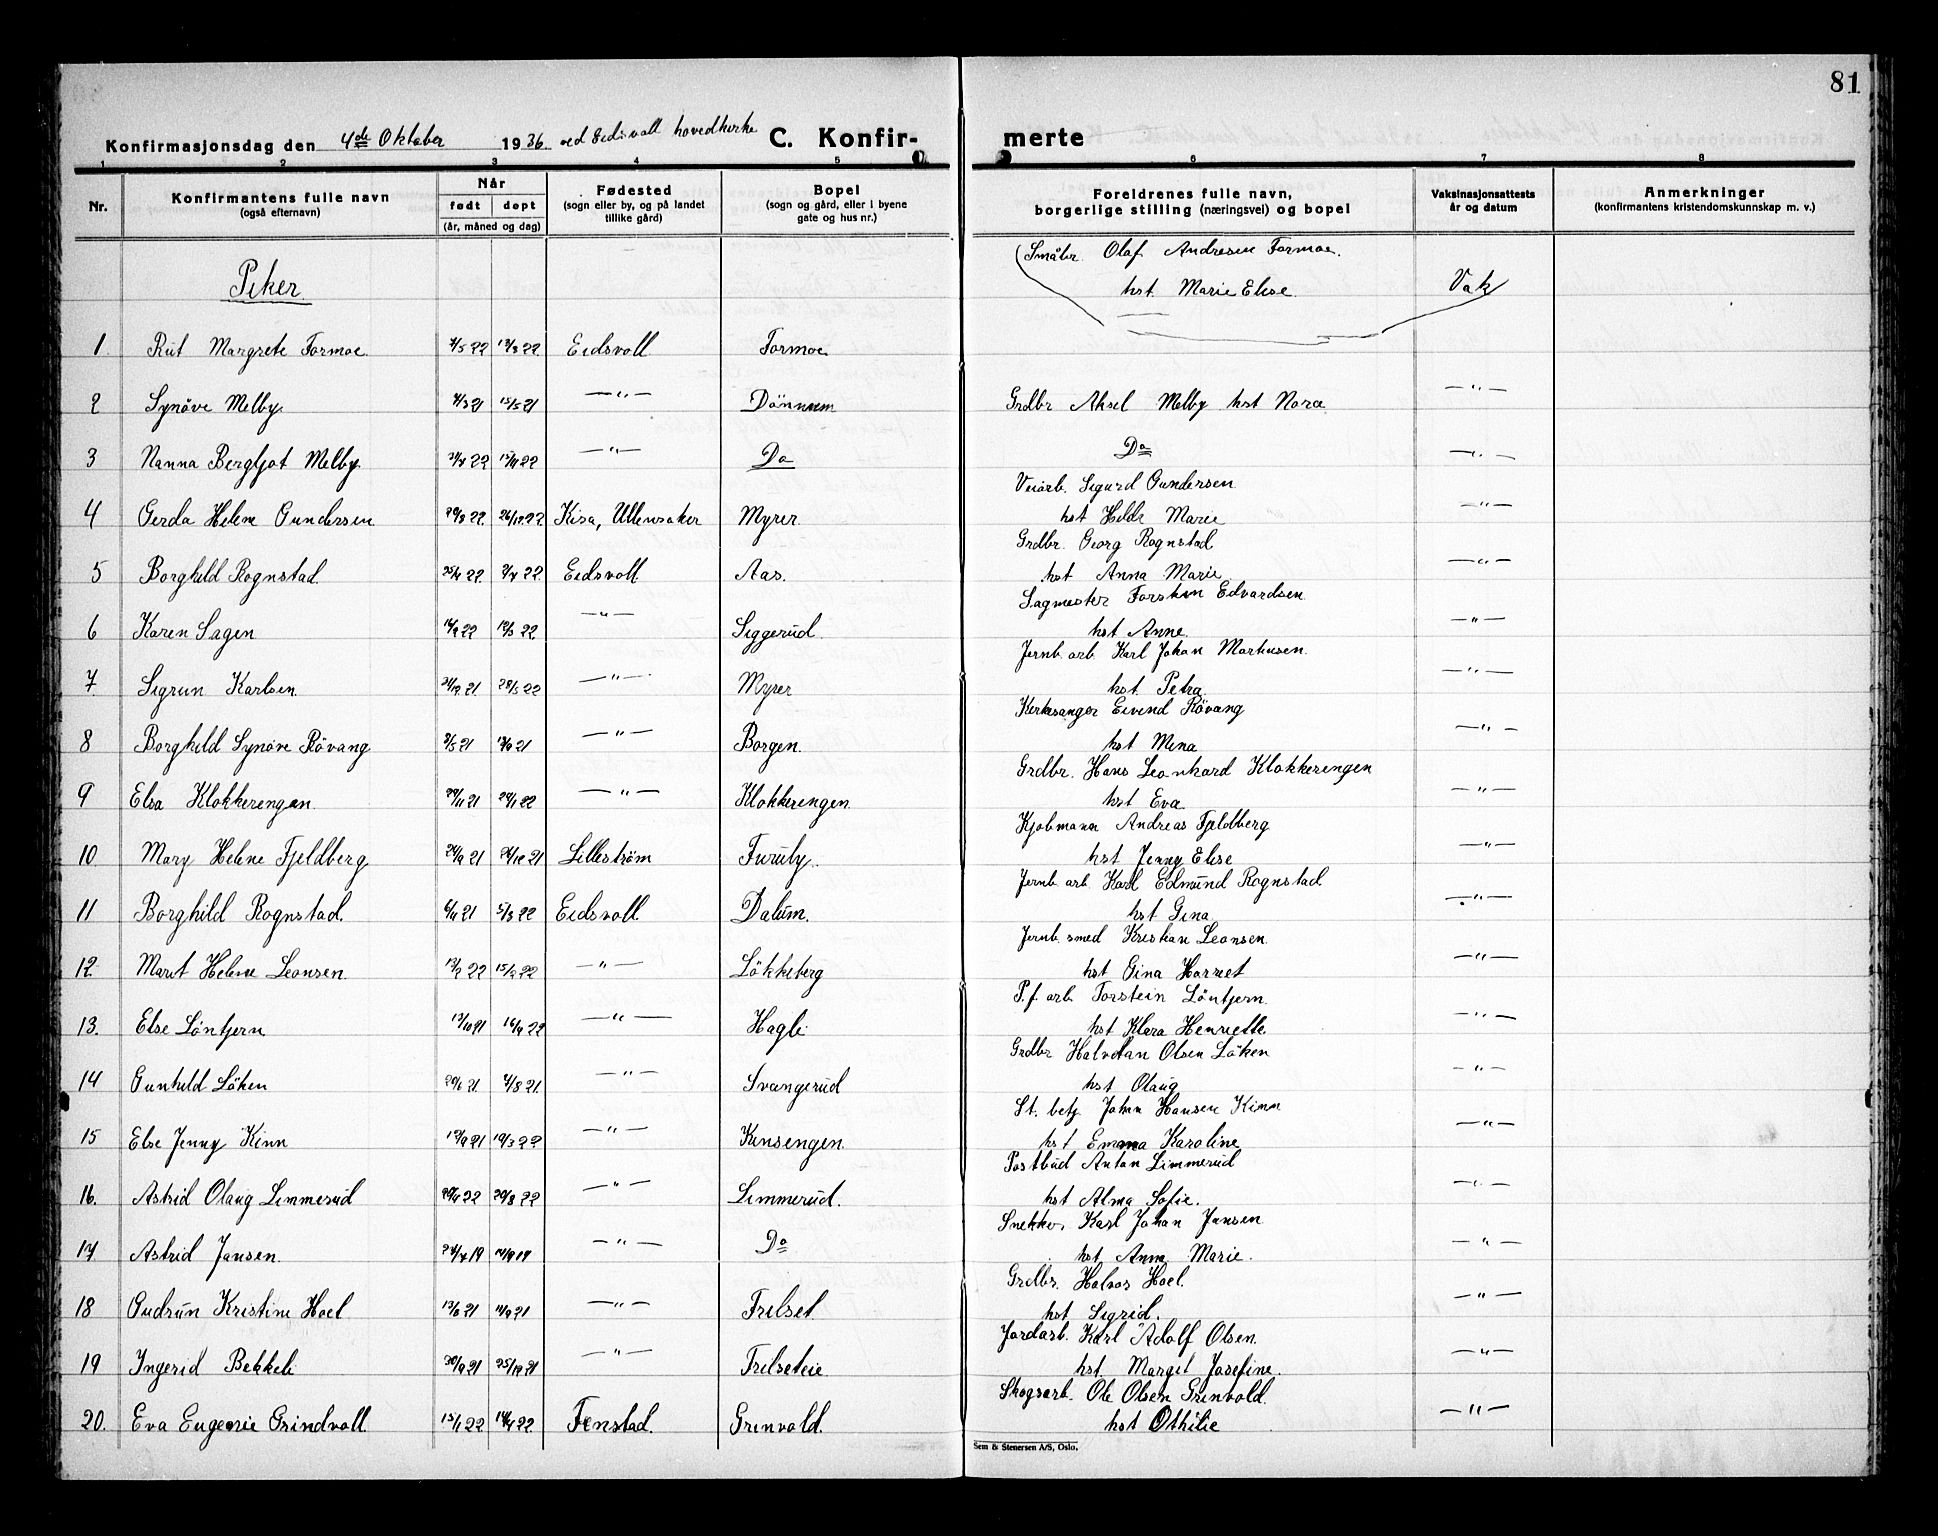 81
Konfirmasjonsdag den 4de Oktober 1936 ved Eidsvoll hovedkirke C. Konfirmerte
1 2 3 4 5 6 7 8
Nr. Konfirmantens fulle navn (også efternavn) Når født døpt (år, måned og dag) Fødested (sogn eller by, og på landet tillike gård) Bopel (sogn og gård, eller i byene gate og hus nr.) Foreldrenes fulle navn, borgerlige stilling (næringsvei) og bopel Vaksinasjonsattests år og datum Anmerkninger (konfirmantens kristendomskunnskap m. v.)
Piker
Småbr. Olaf Andresen Formoe.
hst. Marie Elise. Vak
1 Rut Margrete Formoe Eidsvoll Formoe
2 Synöve Melby 15/5 21 —"— Dönnum Grdbr Aksel Melby hst Nora —"—
3 Nanna Bergljot Melby —"— Do Do —"—
4 Gerda Helene Gundersen 26/12 22 Kisa, Ullensaker Myrer Veiarb. Sigurd Gundersen
hst Hilda Marie —"—
5 Borghild Rognstad Eidsvoll Aas. Grdbr. Georg Rognstad
hst Anna Marie —"—
6 Karen Sagen —"— Siggerud. Sagmester Torstein Edvardsen
hst Anne. —"—
7 Sigrun Karlsen 28/5 22 —"— Myrer Jernb. arb. Karl Johan Markusen.
hst. Petra. —"—
8 Borghild Synöve Rövang —"— Borgen. Kirkesanger Eivind Rövang
hst Mina —"—
9 Elsa Klokkerengen. —"— Klokkerengen. Grdbr. Hans Leonhard Klokkerengen
hst Eva —"—
10 Mary Helene Fjeldberg Lilleström Furuly. Kjøbmann Andreas Fjeldberg
hst Jenny Elise —"—
11 Borghild Rognstad. 6/11 21 5/3 22 Eidsvoll Dalum. Jernb arb. Karl Edmund Rognstad
hst Gina —"—
12. Marit Helene Leonsen. —"— Lökkeberg Jernb. smed Kristian Leonsen.
hst Gina Harriet —"—
13. Else Löntjern 13/10 21 —"— Hagli P.f. arb. Torstein Löntjern.
hst Klara Henriette —"—
14 Gunhild Löken —"— Svangerud Grdbr Halvdan Olsen Löken
hst Olaug —"—
15 Else Jenny Kinn —"— Kinsengen. St. betj. Johan Hansen Kinn
hst Emma Karoline —"—
16. Astrid Olaug Limmerud —"— Limmerud. Postbud Anton Limmerud
hst Alma Sofie. —"—
17 Astrid Jansen. —"— Do Snekker Karl Johan Jansen
hst Anna Marie. —"—
18 Gudrun Kristine Hoel —"— Frilset. Grdbr. Halvor Hoel.
hst Sigrid. —"—
19 Ingerid Bekkeli 25/12 21 —"— Frilseteie. Jordarb. Karl Adolf Olsen.
hst. Margit Josefine. —"—
20. Eva Eugenie Grindvoll 15/1 22 Fenstad. Grinvold. Skogsarb. Ole Olsen Grinvold.
hst Othilie —"—
Sem & Stenersen A/S, Oslo.